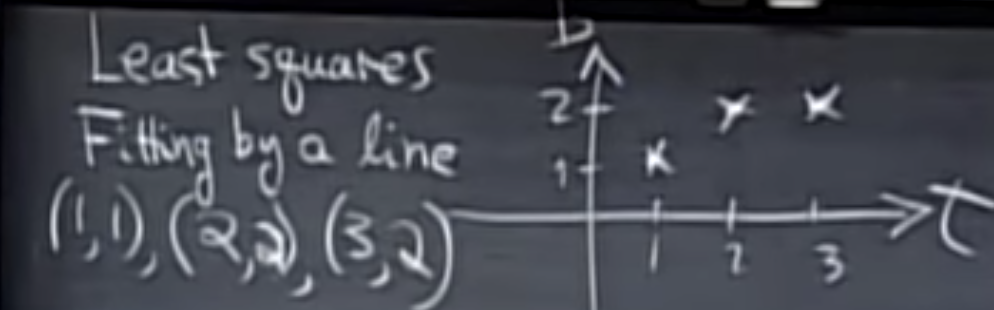 Least squares
Fitting by a line
(1,1), (2,2), (3,2)
b
2
1
1 2 3
t